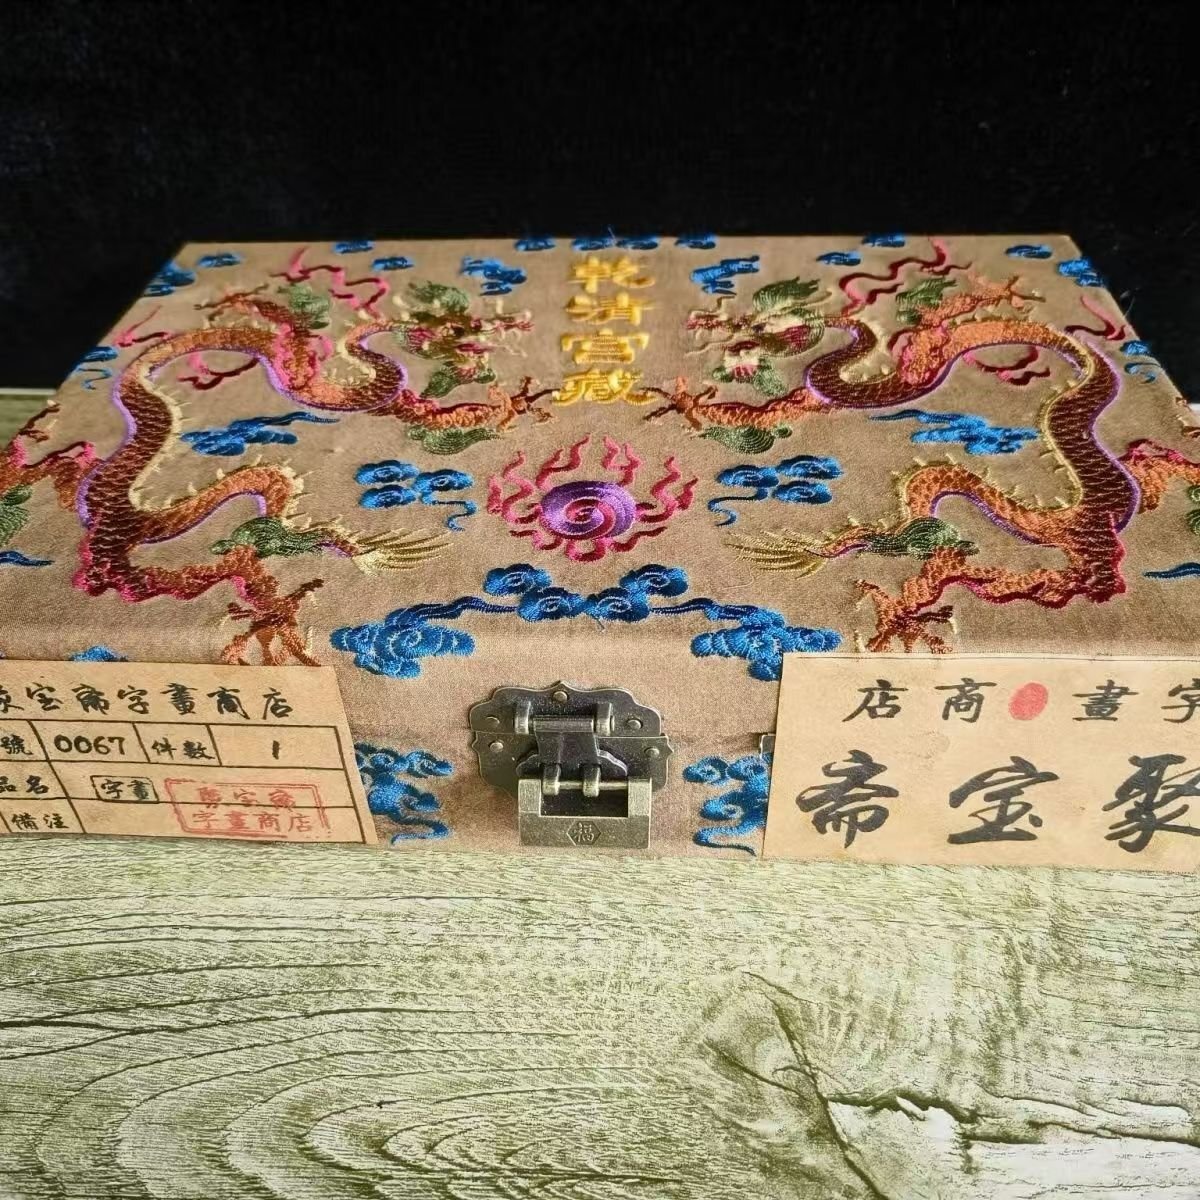 乾清宮藏
聚宝斋字畫商店
號 0067 件數 1
品名 字畫
備注
聚宝斋
字畫商店
店商畫字
斋宝聚
福